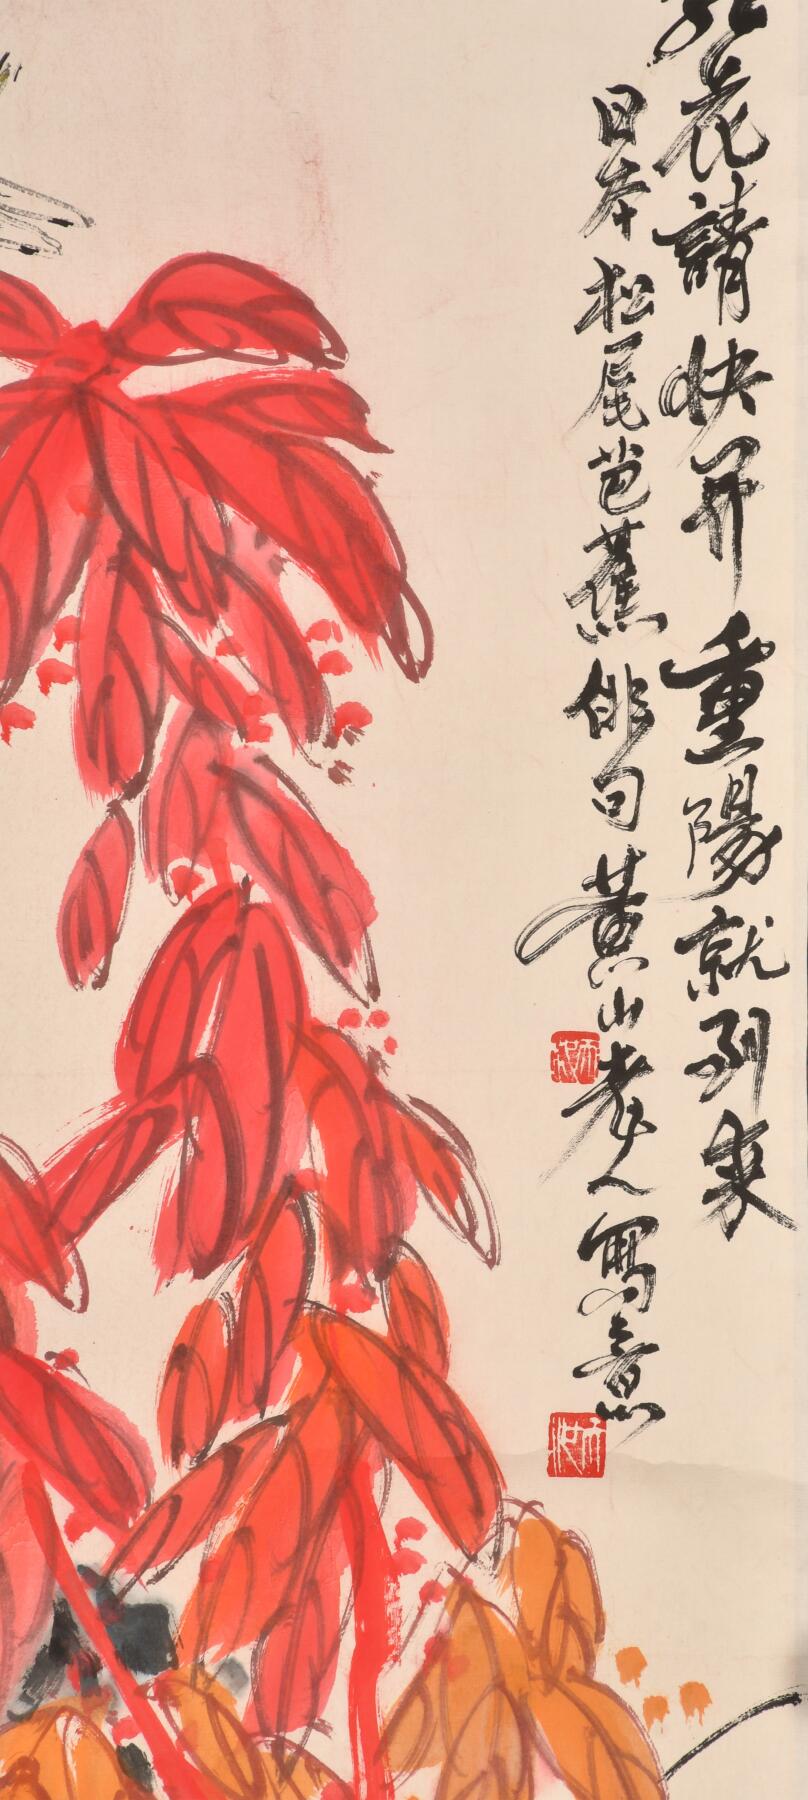 花請快开重陽就到来
日本松尾芭蕉俳句黄山老人寫意